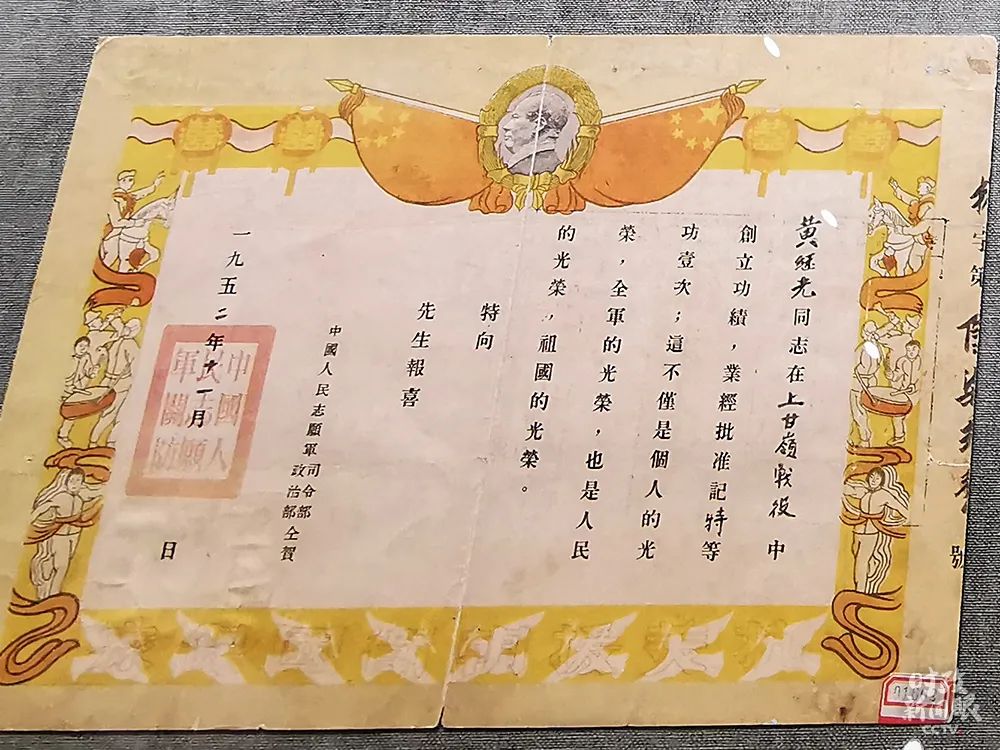 黄继光同志在上甘嶺戰役中
創立功績，業經批准記特等
功壹次；這不僅是個人的光
榮，全軍的光榮，也是人民
的光榮，祖國的光榮。
特向
先生報喜
中國人民志願軍司令部
政治部仝賀
一九五二年十一月 日
中國人
民志願
軍關防
字第
號
時政
新聞眼
CCTV